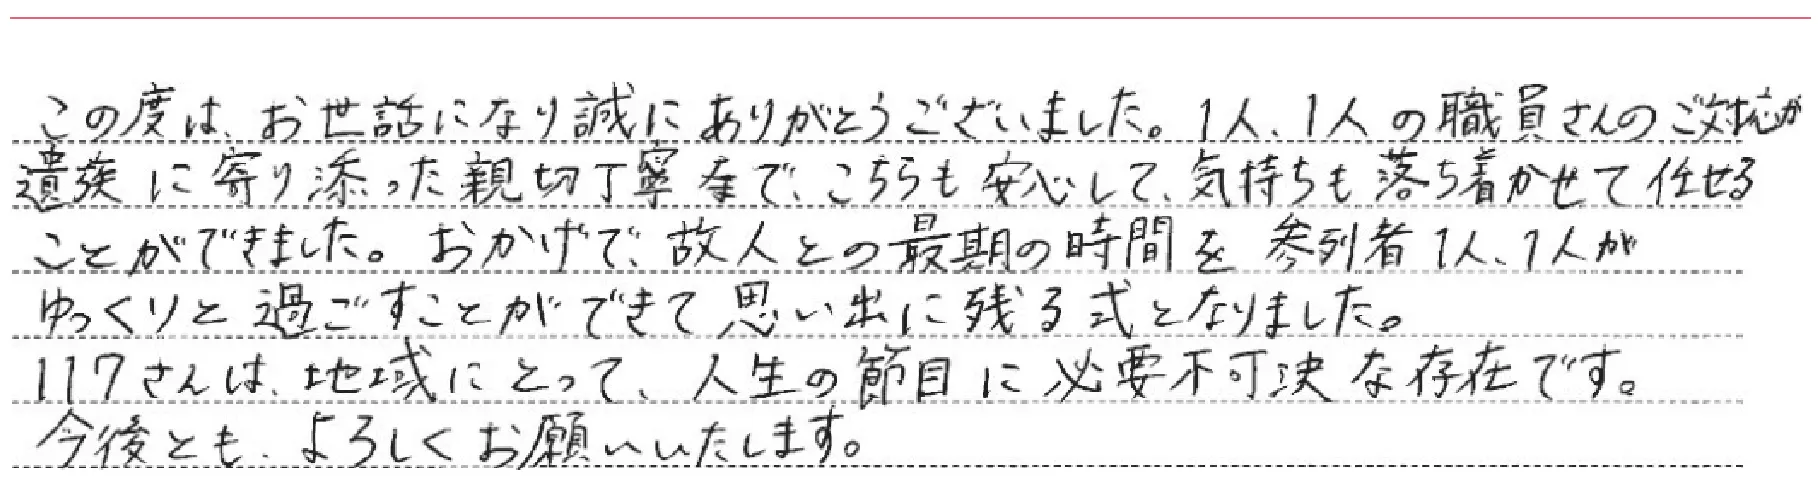 この度は、お世話になり誠にありがとうございました。1人、1人の職員さんのご対応が
遺族に寄り添った親切丁寧なで、こちらも安心して、気持ちも落ち着かせて任せる
ことができました。おかげで、故人との最期の時間を参列者1人、1人が
ゆっくりと過ごすことができて思い出に残る式となりました。
117さんは、地域にとって、人生の節目に必要不可決な存在です。
今後とも、よろしくお願いいたします。